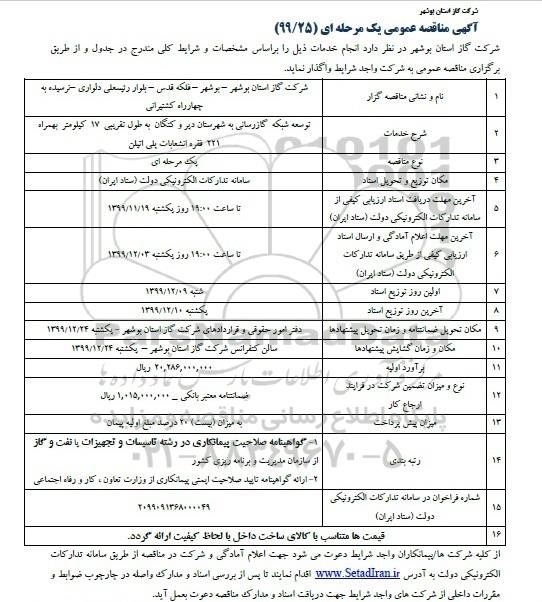 شرکت گاز استان بوشهر
آگهی مناقصه عمومی یک مرحله ای (۹۹/۲۵)
شرکت گاز استان بوشهر در نظر دارد انجام خدمات ذیل را براساس مشخصات و شرایط کلی مندرج در جدول و از طریق
برگزاری مناقصه عمومی به شرکت واجد شرایط واگذار نماید.
۱ نام و نشانی مناقصه گزار شرکت گاز استان بوشهر – بوشهر – فلکه قدس – بلوار رئیسعلی دلواری –نرسیده به
چهارراه کشتیرانی
۲ شرح خدمات توسعه شبکه گازرسانی به شهرستان دیر و کنگان به طول تقریبی ۱۷ کیلومتر بهمراه
۲۲۱ فقره انشعابات پلی اتیلن
۳ نوع مناقصه یک مرحله ای
۴ مکان توزیع و تحویل اسناد سامانه تدارکات الکترونیکی دولت (ستاد ایران)
۵ آخرین مهلت دریافت اسناد ارزیابی کیفی از
سامانه تدارکات الکترونیکی دولت (ستاد ایران) تا ساعت ۱۹:۰۰ روز یکشنبه ۱۳۹۹/۱۱/۱۹
۶ آخرین مهلت اعلام آمادگی و ارسال اسناد
ارزیابی کیفی از طریق سامانه تدارکات
الکترونیکی دولت (ستاد ایران) تا ساعت ۱۹:۰۰ روز یکشنبه ۱۳۹۹/۱۲/۰۳
۷ اولین روز توزیع اسناد شنبه ۱۳۹۹/۱۲/۰۹
۸ آخرین روز توزیع اسناد یکشنبه ۱۳۹۹/۱۲/۱۰
۹ مکان تحویل ضمانتنامه و زمان تحویل پیشنهادها دفتر امور حقوقی و قراردادهای شرکت گاز استان بوشهر – یکشنبه ۱۳۹۹/۱۲/۲۴
۱۰ مکان و زمان گشایش پیشنهادها سالن کنفرانس شرکت گاز استان بوشهر – یکشنبه ۱۳۹۹/۱۲/۲۴
۱۱ برآورد اولیه ۲۰,۲۸۶,۰۰۰,۰۰۰ ریال
۱۲ نوع و میزان تضمین شرکت در فرایند
ارجاع کار ضمانتنامه معتبر بانکی _ ۱,۰۱۵,۰۰۰,۰۰۰ ریال
۱۳ میزان پیش پرداخت به میزان (بیست) ۲۰ درصد مبلغ اولیه پیمان
۱۴ رتبه بندی ۱- گواهینامه صلاحیت پیمانکاری در رشته تاسیسات و تجهیزات یا نفت و گاز
از سازمان مدیریت و برنامه ریزی کشور
۲- ارائه گواهینامه تایید صلاحیت ایمنی پیمانکاری از وزارت تعاون ، کار و رفاه اجتماعی
۱۵ شماره فراخوان در سامانه تدارکات الکترونیکی
دولت (ستاد ایران) ۲۰۹۹۰۹۱۳۶۸۰۰۰۰۴۹
۱۶ قیمت ها متناسب با کالای ساخت داخل با لحاظ کیفیت ارائه گردد.
از کلیه شرکت ها/پیمانکاران واجد شرایط دعوت می شود جهت اعلام آمادگی و شرکت در مناقصه از طریق سامانه تدارکات
الکترونیکی دولت به آدرس www.SetadIran.ir اقدام نمایند تا پس از بررسی اسناد و مدارک واصله در چارچوب ضوابط و
مقررات داخلی از شرکت های واجد شرایط جهت دریافت اسناد و مدارک مناقصه دعوت بعمل آید.
پایگاه اطلاع رسانی مناقصه و مزایده
۰۲۱-۸۸۳۴۹۶۷۰-۵